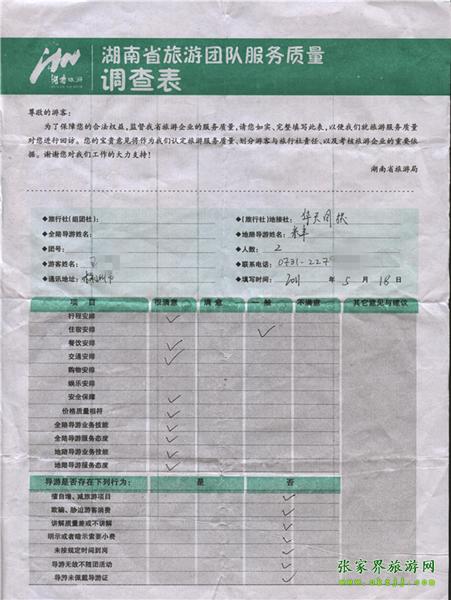 湖南旅游
湖南省旅游团队服务质量
调查表
尊敬的游客：
为了保障您的合法权益，监督我省旅游企业的服务质量，请您如实、完整填写此表，以便我们就旅游服务质量
对您进行回访。您的宝贵意见将作为我们认定旅游服务质量、划分游客与旅行社责任、以及考核旅游企业的重要依
据。谢谢您对我们工作的大力支持！
湖南省旅游局
◆旅行社（组团社）： ◆（旅行社）地接社：华天国旅
◆全陪导游姓名： ◆地陪导游姓名：
◆团号： ◆人数：2
◆游客姓名： ◆联系电话：0731-227
◆通讯地址：株洲市 ◆填写时间：2011 年 5 月 18 日
项 目 很满意 满 意 一 般 不满意 其它意见与建议
行程安排 ✓
住宿安排 ✓
餐饮安排 ✓
交通安排 ✓
购物安排
娱乐安排
安全保障 ✓
价格质量相符 ✓
全陪导游业务技能 ✓
全陪导游服务态度 ✓
地陪导游业务技能 ✓
地陪导游服务态度 ✓
导游是否存在下列行为： 是 否
擅自增、减旅游项目 ✓
欺骗、胁迫游客消费 ✓
讲解质量差或不讲解 ✓
明示或者暗示索要小费 ✓
未按规定时间到岗 ✓
导游无故不随团活动 ✓
导游未佩戴导游证 ✓
张家界旅游网
www.zhzjj.com